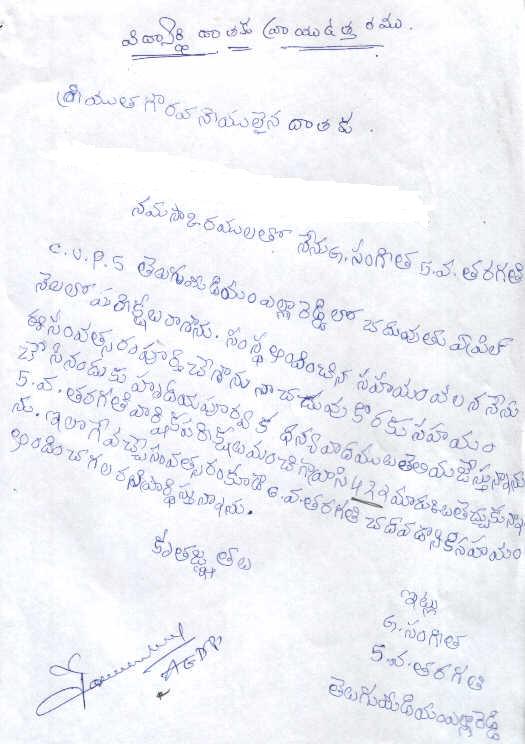 విద్యార్థి దాతకు వ్రాయు ఉత్తరము.
శ్రీయుత గౌరవనీయులైన దాతకు
నమస్కారములతో నేను ఉ. సంగీత 5.వ. తరగతి
C.U.P.S తెలుగుమీడియం ఎల్లారెడ్డి లో చదువుతు ఏప్రిల్
నెలలో పరీక్షలు రాశాను. సంస్థ అందించిన సహాయం వలన నేను
ఈ సంవత్సరం పూర్తి చేశాను నా చదువు కొరకు సహాయం
చేసినందుకు హృదయపూర్వక ధన్యవాదములు తెలియజేస్తున్నాను
5.వ. తరగతి వార్షిక పరీక్షలు మంచిగా వ్రాసి 422 మార్కులు తెచ్చుకున్నా
ను. ఇలాగే వచ్చే సంవత్సరం కూడా 6.వ. తరగతి చదవడానికి సహాయం
అందించగలరని ప్రార్థిస్తున్నాను.
కృతజ్ఞతలు
ఇట్లు
ఉ. సంగీత
5.వ. తరగతి
తెలుగుమీడియం ఎల్లారెడ్డి